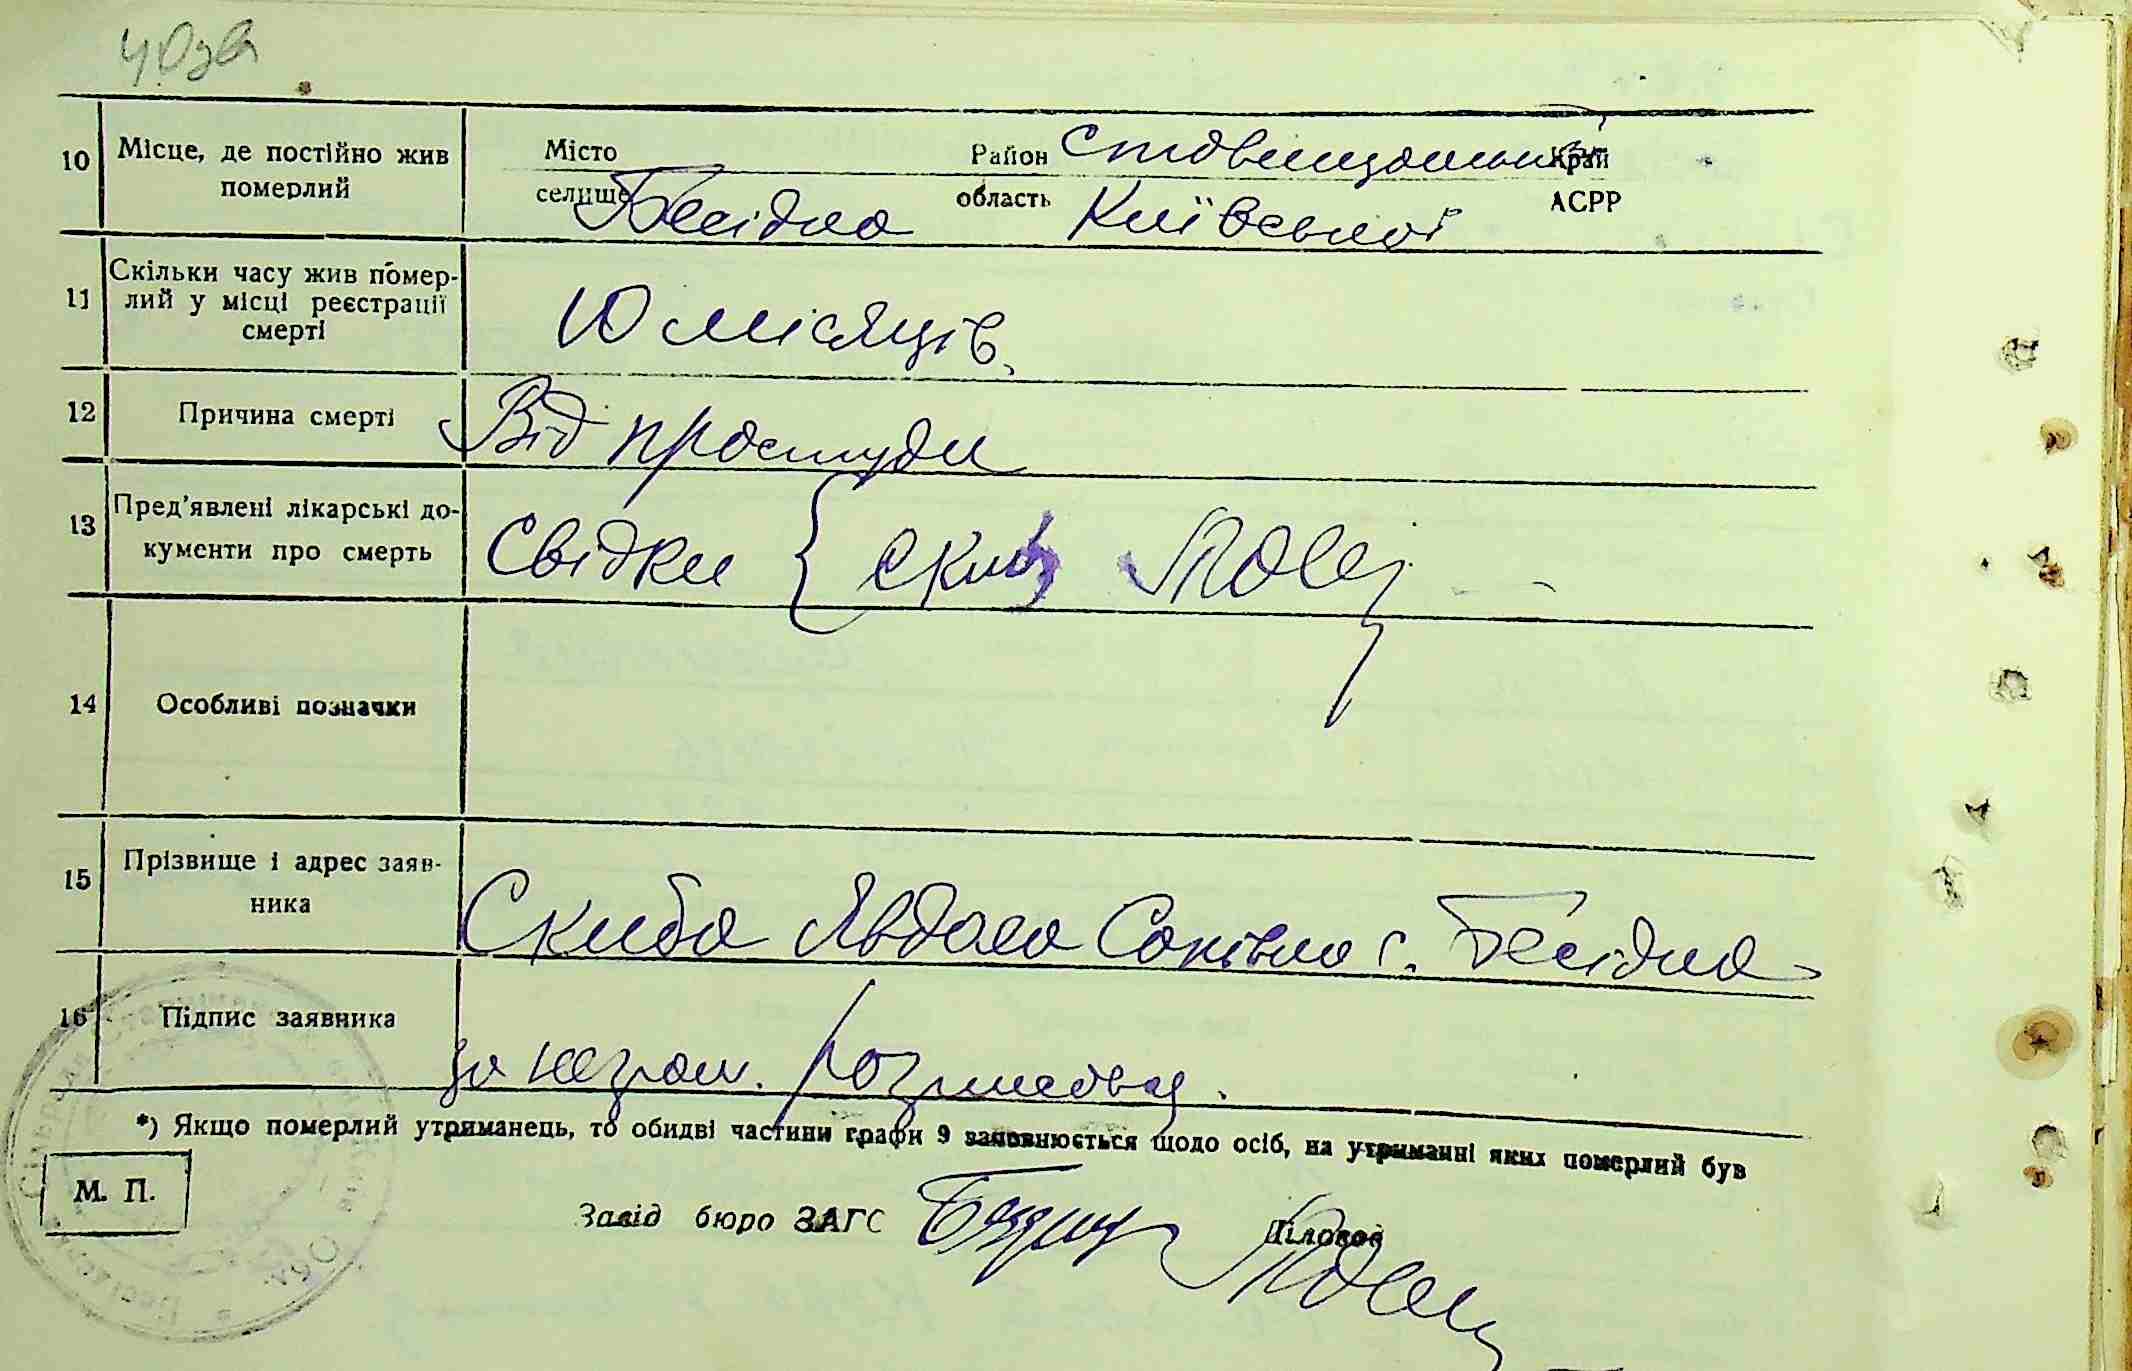 403в
10 Місце, де постійно жив померлий Місто Район Ставищанський Край
селище Бесідка область Київської АСРР
11 Скільки часу жив помер-
лий у місці реєстрації
смерті 10 місяців.
12 Причина смерті Від простуди
13 Пред'явлені лікарські до-
кументи про смерть Свідки {
14 Особливі позначки
15 Прізвище і адрес заяв-
ника Скиба Явдоха с. Бесідка
16 Підпис заявника за неграм.
*) Якщо померлий утриманець, то обидві частини графи 9 заповнюється щодо осіб, на утриманні яких померлий був
М. П.
Завід бюро ЗАГС Діловод